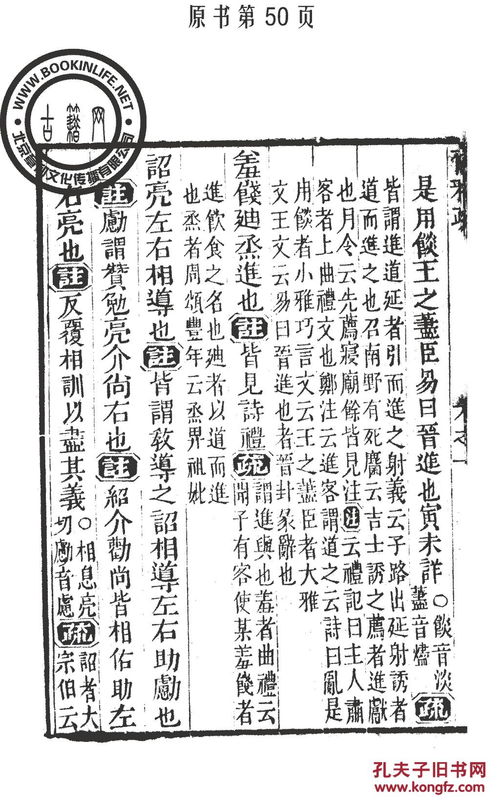 原书第50页
WWW.BOOKINLIFE.NET
古籍网
文化传播有限公司
是用餤王之藎臣易曰晉進也寅未詳○餤音淡藎音燼疏
皆謂進道延者引而進之射義云子路出延射誘者
道而進之也召南野有死麕云吉士誘之薦者進獻
也月令云先薦寢廟餘皆見注注云禮記曰主人肅
客者上曲禮文也鄭注云進客謂道之云詩曰亂是
用餤者小雅巧言文云王之藎臣者大雅
文王文云易曰晉進也者晉卦彖辭也
羞餞廸烝進也註皆見詩禮疏謂進與也羞者曲禮云聞子有客使某羞餞者
進飲食之名也廸者以道而進
也烝者周頌豐年云烝畀祖妣
詔亮左右相導也註皆謂敎導之詔相導左右助勴也
註勴謂贊勉亮介尚右也註紹介勸尚皆相佑助左
右亮也註反覆相訓以盡其義○相息亮切勴音慮疏詔者大宗伯云
孔夫子旧书网
www.kongfz.com